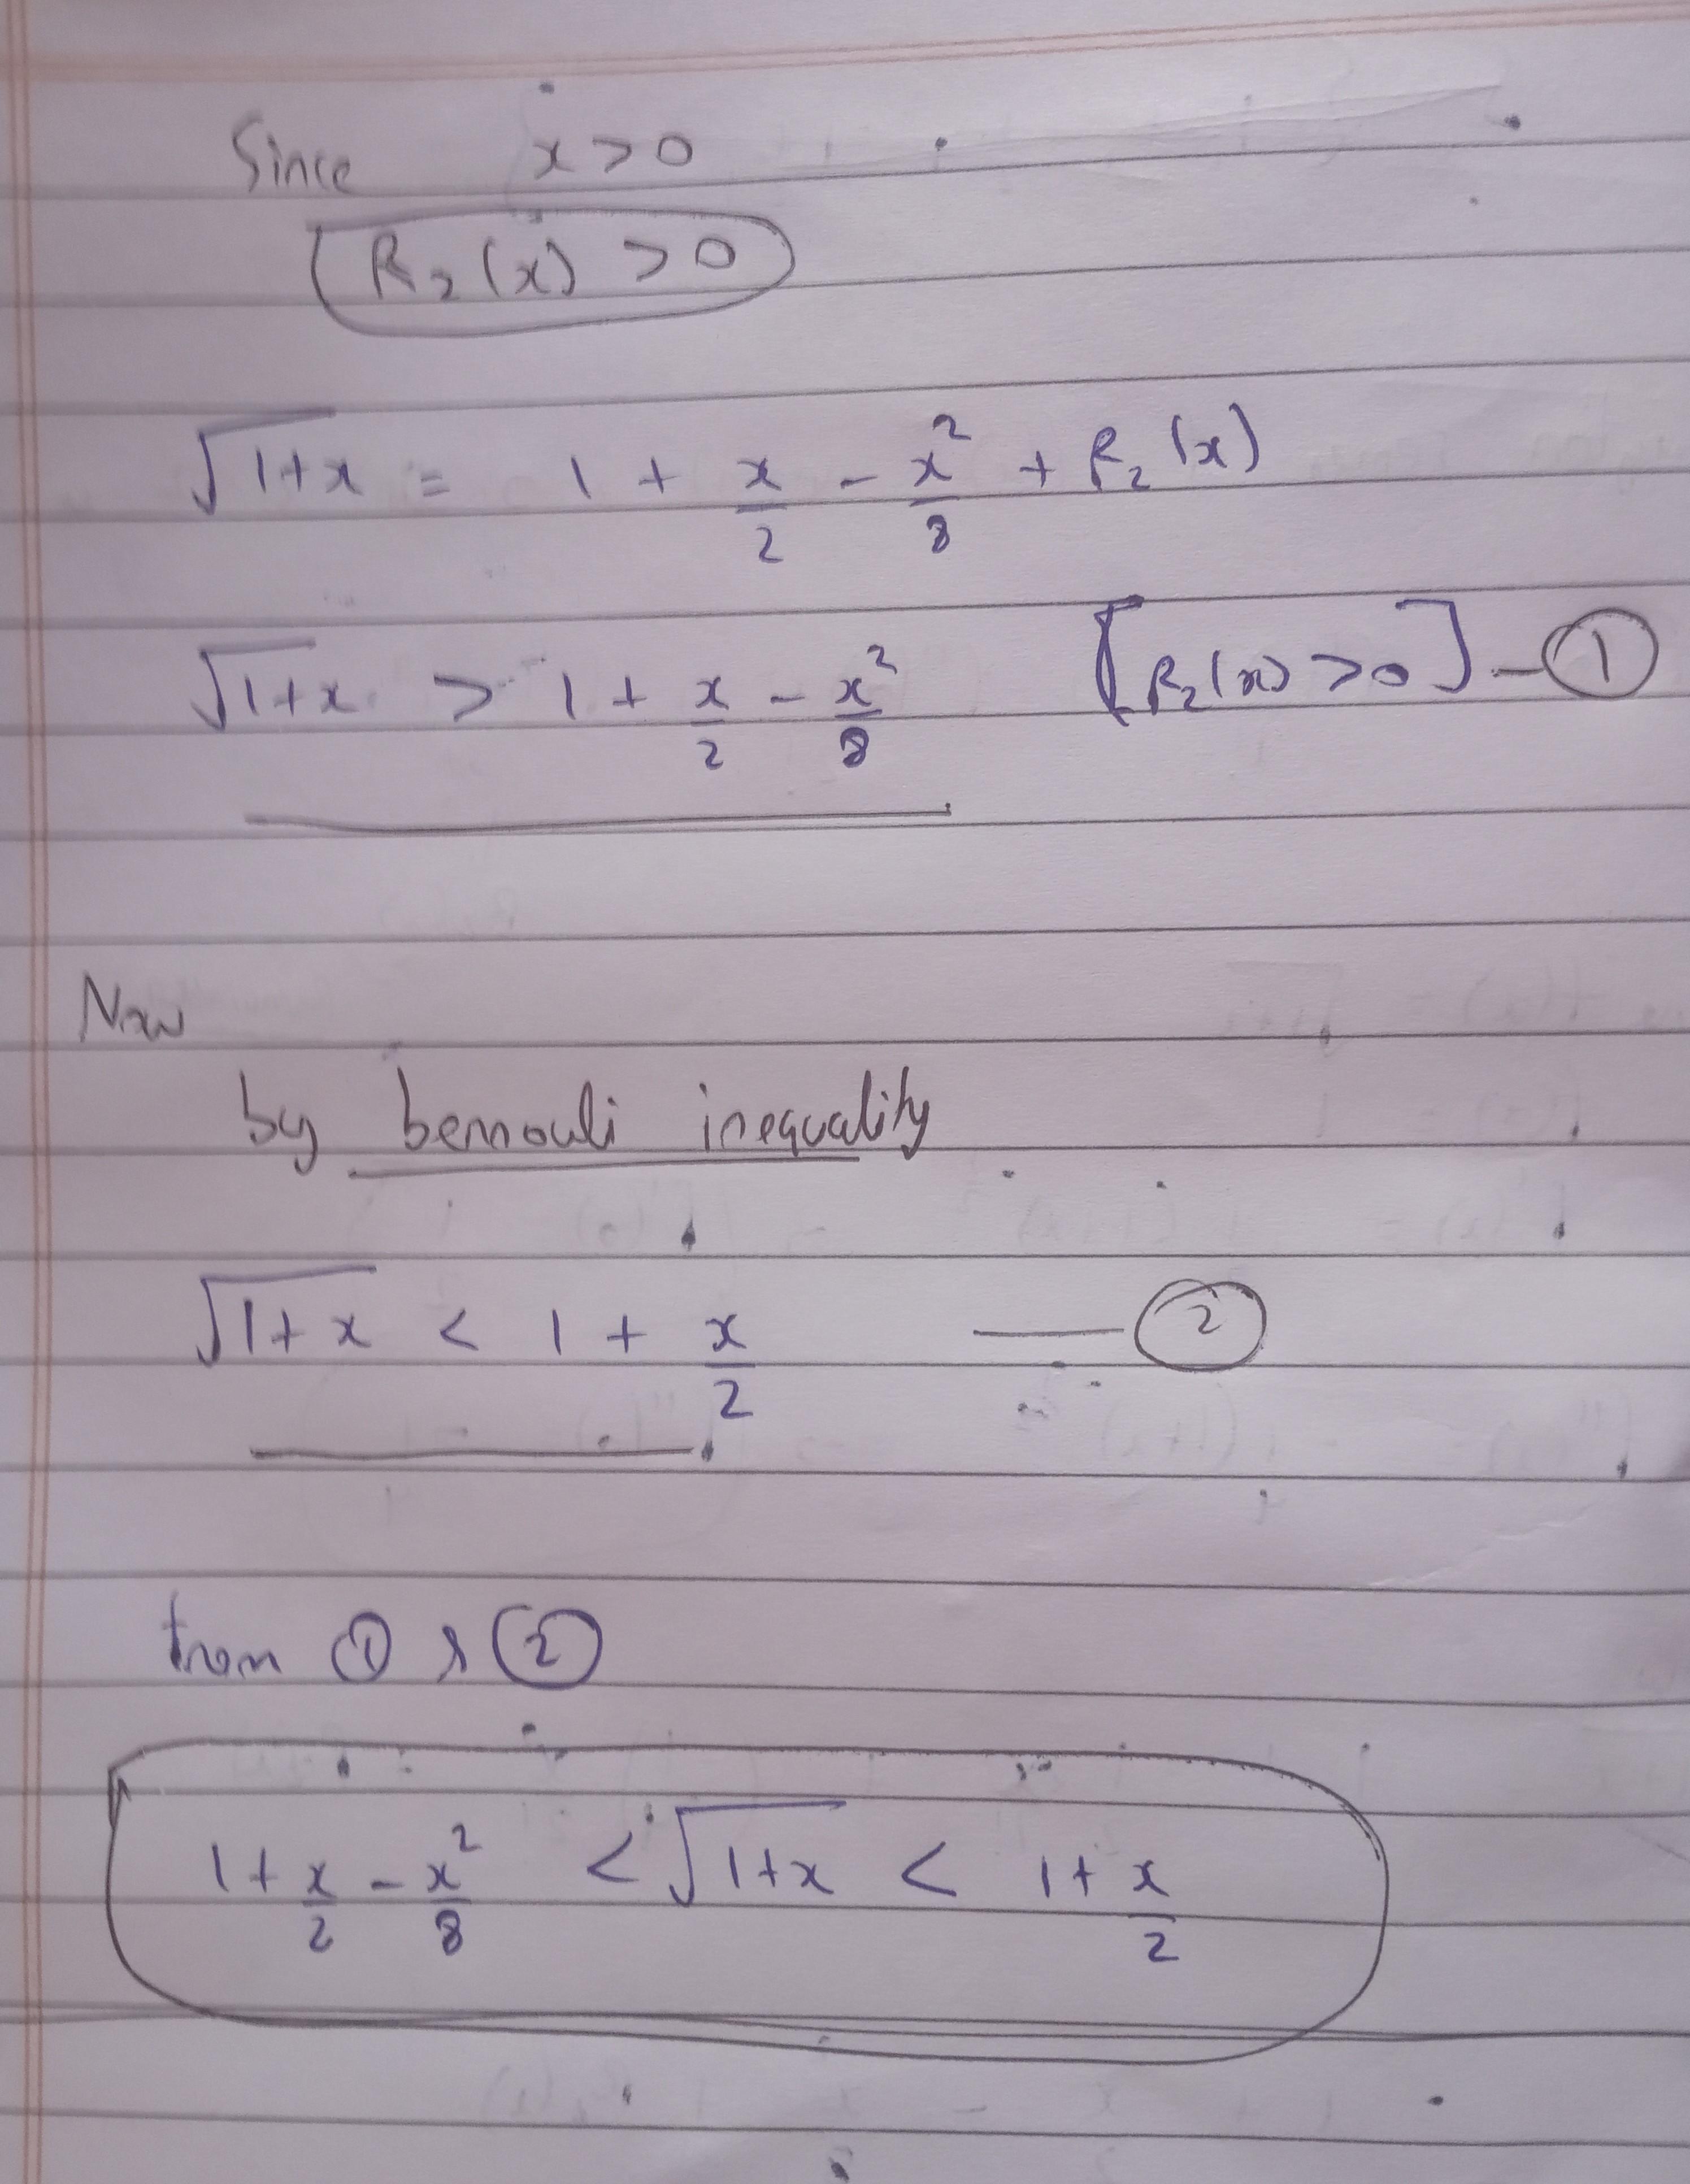 Since x > 0
R₂(x) > 0
√(1+x) = 1 + x/2 - x²/8 + R₂(x)
√(1+x) > 1 + x/2 - x²/8 [R₂(x) > 0] - ①
Now
by bernouli inequality
√(1+x) < 1 + x/2 — ②
from ① & ②
1 + x/2 - x²/8 < √(1+x) < 1 + x/2